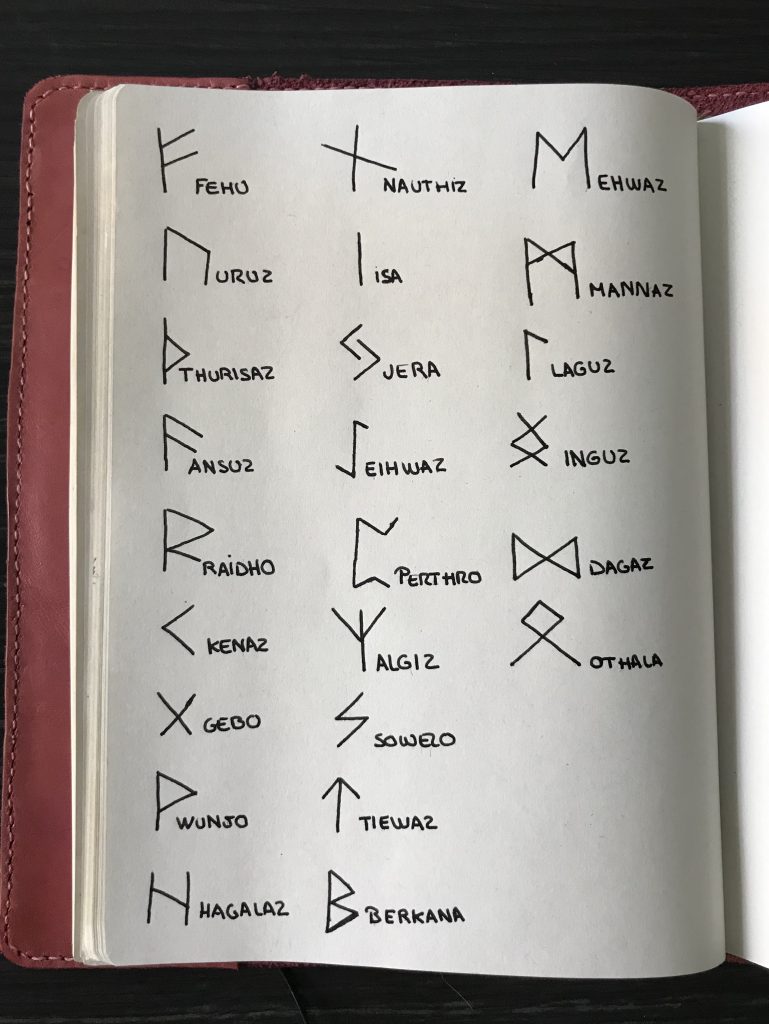 ᚠ FEHU
ᚢ URUZ
ᚦ THURISAZ
ᚨ ANSUZ
ᚱ RAIDHO
ᚲ KENAZ
ᚷ GEBO
ᚹ WUNJO
ᚺ HAGALAZ
ᚾ NAUTHIZ
ᛁ ISA
ᛃ JERA
ᛇ EIHWAZ
ᛈ PERTHRO
ᛉ ALGIZ
ᛊ SOWELO
ᛏ TIEWAZ
ᛒ BERKANA
ᛖ EHWAZ
ᛗ MANNAZ
ᛚ LAGUZ
ᛝ INGUZ
ᛞ DAGAZ
ᛟ OTHALA